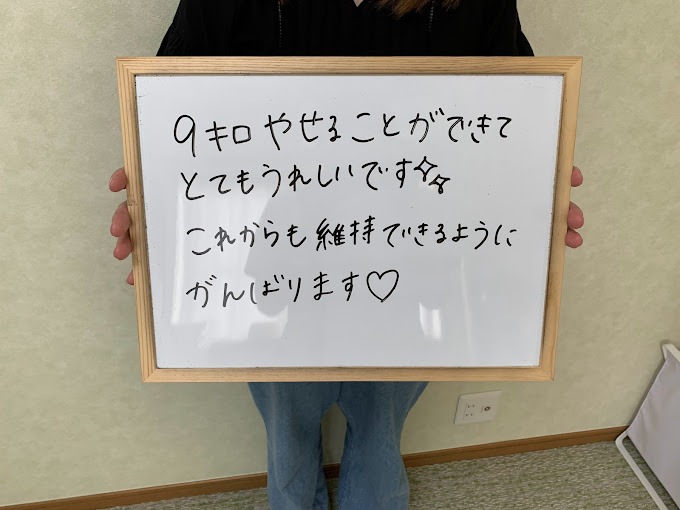 9キロやせることができて
とてもうれしいです✧✧
これからも維持できるように
がんばります♡